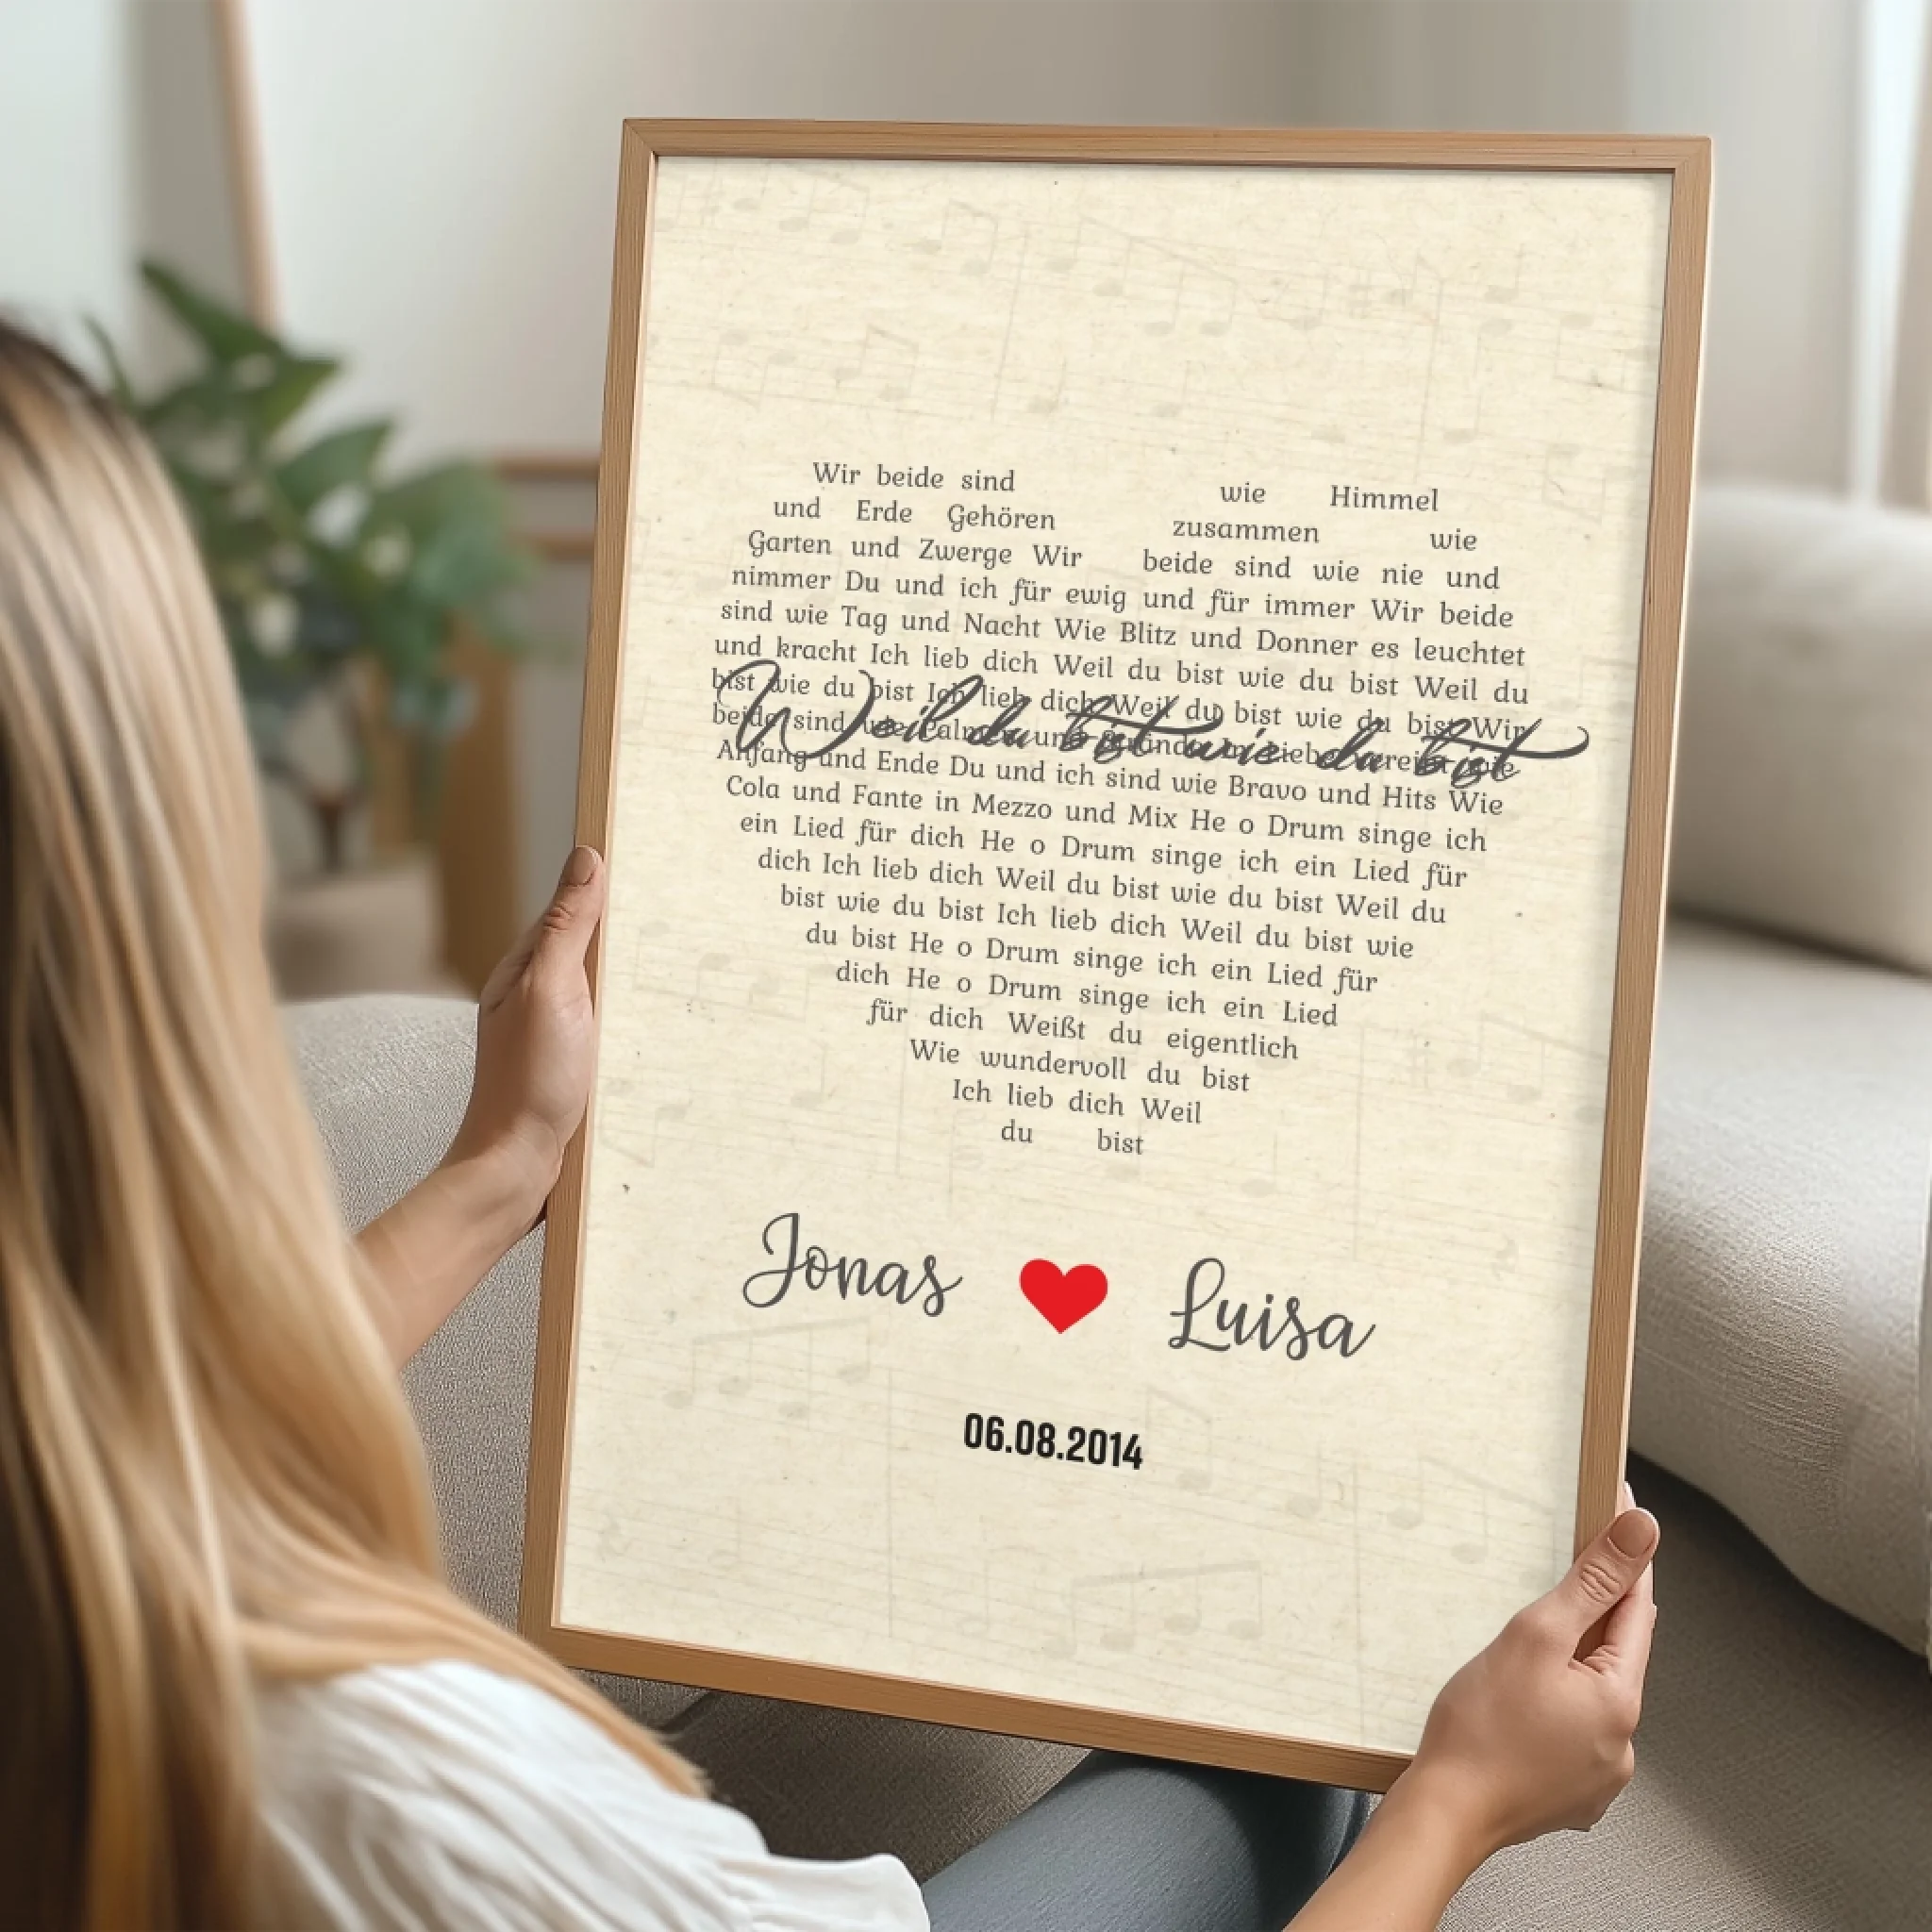 Wir beide sind wie Himmel
und Erde Gehören zusammen wie
Garten und Zwerge Wir beide sind wie nie und
nimmer Du und ich für ewig und für immer Wir beide
sind wie Tag und Nacht Wie Blitz und Donner es leuchtet
und kracht Ich lieb dich Weil du bist wie du bist Weil du
bist wie du bist Ich lieb dich Weil du bist wie du bist Wir
Weil du bist wie du bist
beide sind und
Anfang und Ende Du und ich sind wie Bravo und Hits Wie
Cola und Fante in Mezzo und Mix He o Drum singe ich
ein Lied für dich He o Drum singe ich ein Lied für
dich Ich lieb dich Weil du bist wie du bist Weil du
bist wie du bist Ich lieb dich Weil du bist wie
du bist He o Drum singe ich ein Lied für
dich He o Drum singe ich ein Lied
für dich Weißt du eigentlich
Wie wundervoll du bist
Ich lieb dich Weil
du bist
Jonas Luisa
06.08.2014